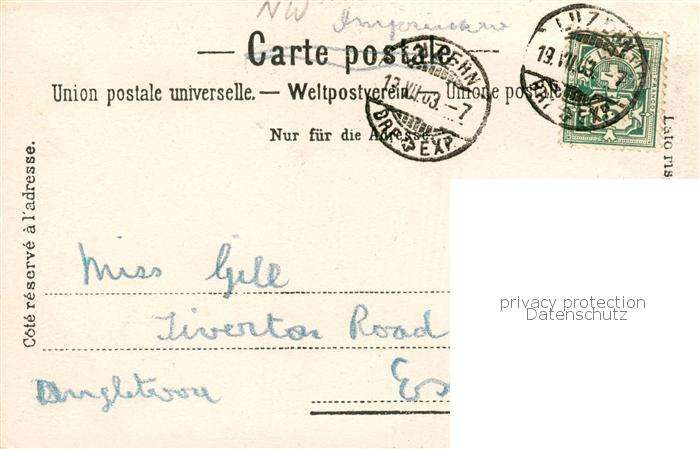 NW
— Carte postale. —
Union postale universelle. — Weltpostverein. — Unione postale
Nur für die Adresse.
LUZERN
19.VII.03.–7
BRF. EXP.
LUZERN
19.VII.03.–7
BRF. EXP.
Côté réservé à l'adresse.
Lato ris
Miss Gill
Tiverton Road
Ex
Angleterre
privacy protection
Datenschutz